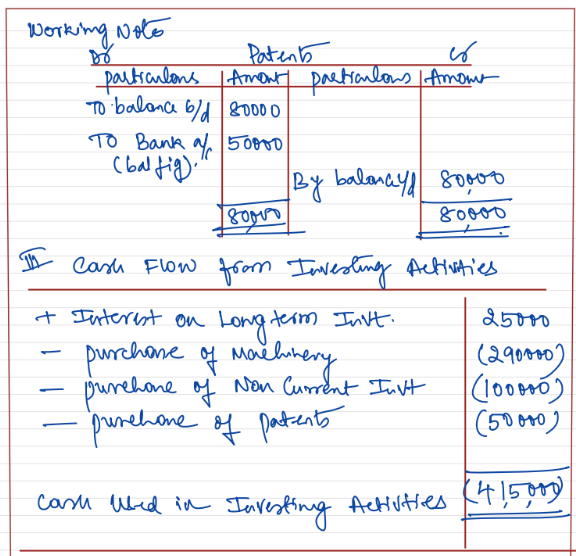 Working Note
Dr Patents Cr
particulars Amount particulars Amount
To balance b/d 80000
To Bank a/c 50000
(bal fig).
By balance c/d 80,000
80,000 80,000
III Cash Flow from Investing Activities
+ Interest on Long term Invt. 25000
— purchase of Machinery (290000)
— purchase of Non Current Invt (100000)
— purchase of patents (50000)
Cash Used in Investing Activities (415,000)